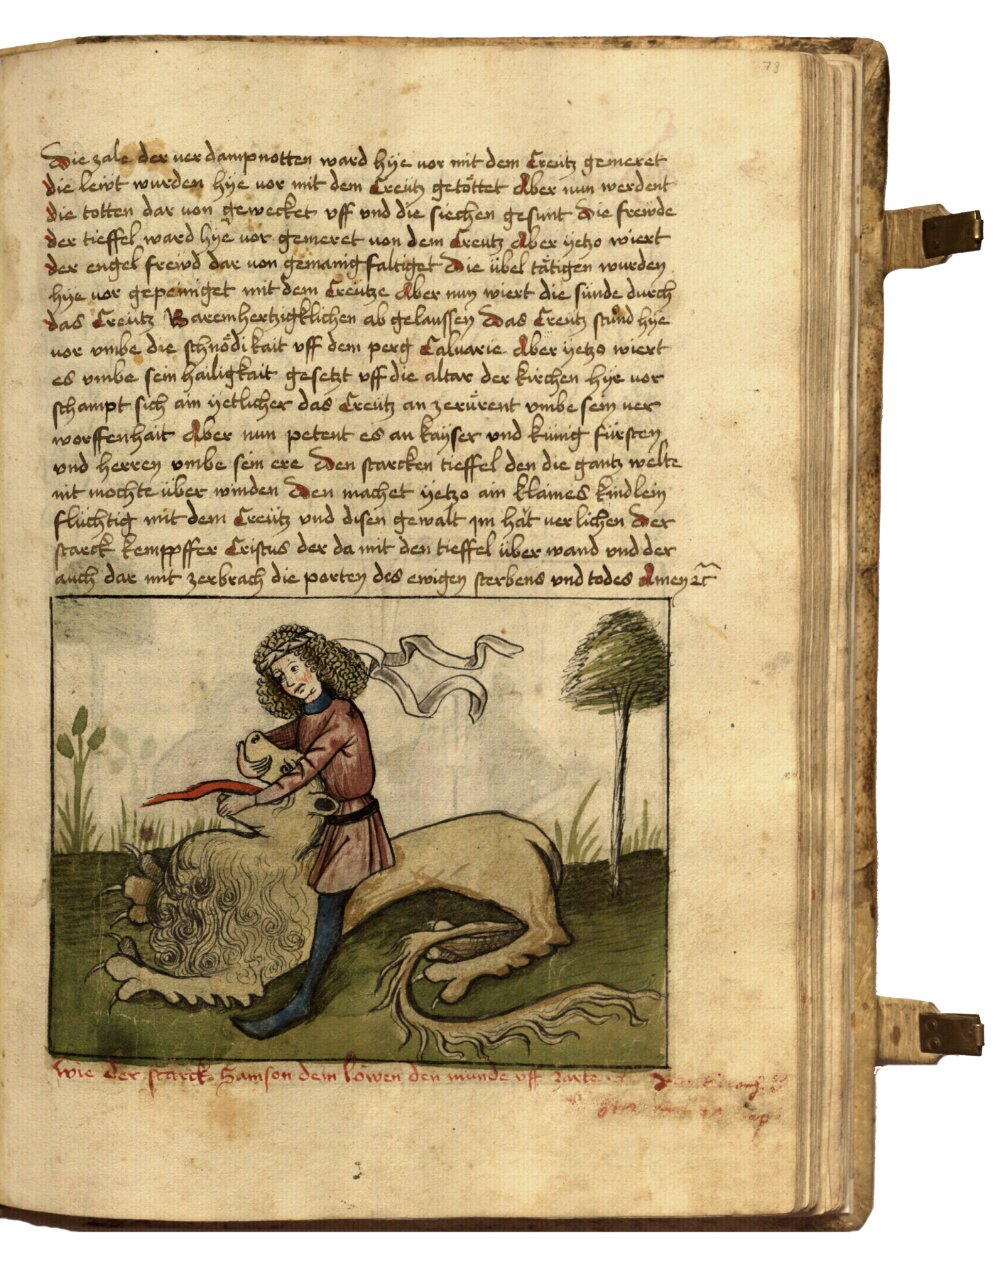 79
Die zale der verdampnotten ward hye vor mit dem Creütz gemeret
die lewt wurden hye vor mit dem Creütz getöttet Aber nun werdent
die totten dar von gewecket vff vnd die siechen gesunt Die frewde
der tieffel ward hye vor gemeret von dem Creutz Aber yetzo wiert
der engel frewd dar von gemanigfaltiget Die übel tätigen wurden
hye vor gepeiniget mit dem Creütze Aber nun wiert die sünde durch
das Creütz Baremhertzigklichen ab gelaussen Das Creutz stund hye
vor vmbe die schnödikait vff dem perg Caluarie Aber yetzo wiert
es vmbe sein hailigkait gesetzt vff die altar der kirchen hye vor
schampt sich ain yetlicher das Creütz an zerürent vmbe sein ver
worffenhait Aber nun petent es an kayser vnd künig fürsten
vnd herren vmbe sein ere Den starcken tieffel den die gantz welte
nit mochte über winden Den machet yetzo ain klaines kindlein
flüchtig mit dem Creütz vnd disen gewalt jm hät verlichen Der
starck kempffer Cristus der da mit den tieffel über wand vnd der
auch dar mit zerbrach die porten des ewigen sterbens vnd todes Amen
wie der starck Samson dem löwen den munde vff zarte